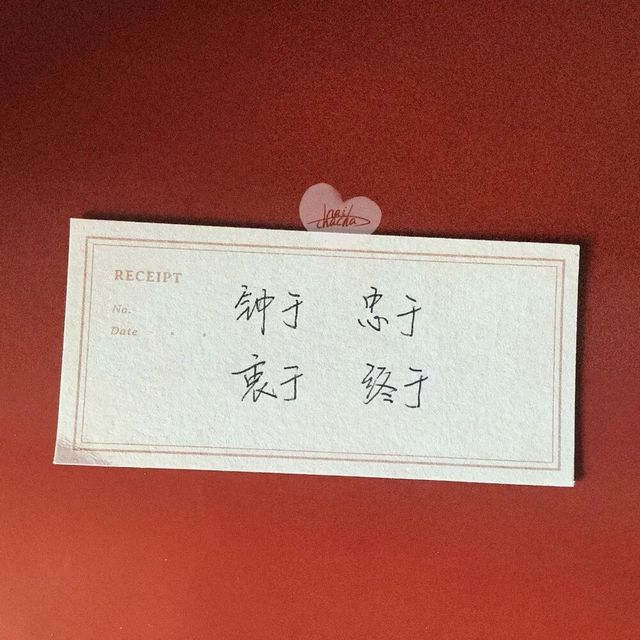 nai
chacha
RECEIPT
No.
Date
钟于 忠于
衷于 终于